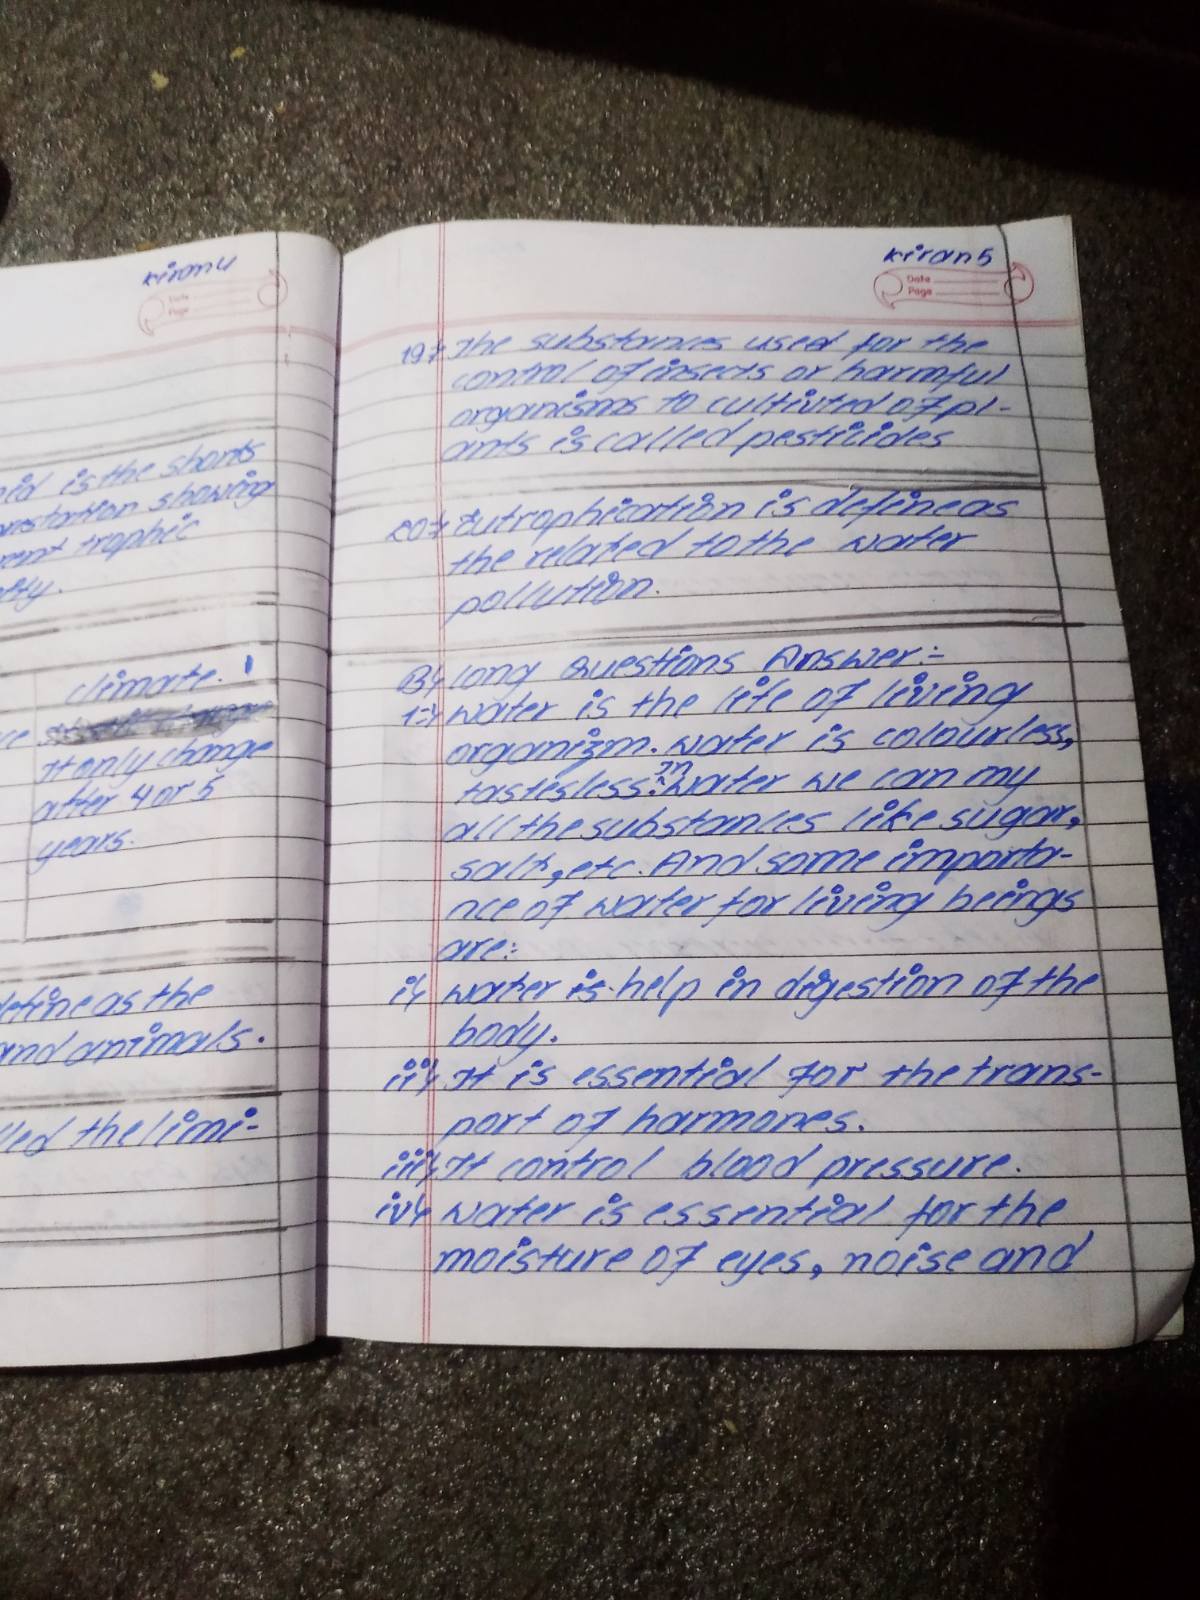 kiran4
Date
Page
is the shorts
showing
trophic
climate.
It only change
after 4 or 5
years.
define as the
and animals.
the limi-
kiran5
Date
Page
19⇒ The substances used for the
control of insects or harmful
organisms to cultivted of pl-
ants is called pesticides
20⇒ Eutrophication is define as
the related to the water
pollution.
B⇒ Long Questions Answer:-
1⇒ Water is the life of living
organizm. Water is colourless,
tastesless. In water we can my
all the substances like sugar,
salt, etc. And some importa-
nce of water for living beings
are:
i⇒ Water is help in digestion of the
body.
ii⇒ It is essential for the trans-
port of harmones.
iii⇒ It control blood pressure.
iv⇒ Water is essential for the
moisture of eyes, noise and